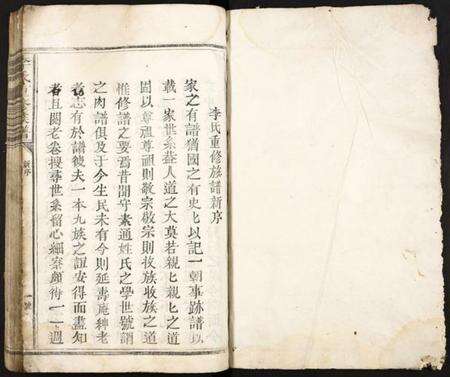 李氏重修族譜新序
家之有譜猶國之有史也史以記一朝事跡譜以
載一家世系蓋人道之大莫若親匕親匕之道
固以尊祖尊祖則敬宗敬宗則收族收族之道
惟修譜之要焉昔間守素通姓氏之學世號謂
之肉譜俱及于今生民未有今則延壽庵紳老
者志有於譜彼夫一本九族之誼安得而盡知
者且閱老卷搜尋世系留心細察顏術一一週
新序
一號